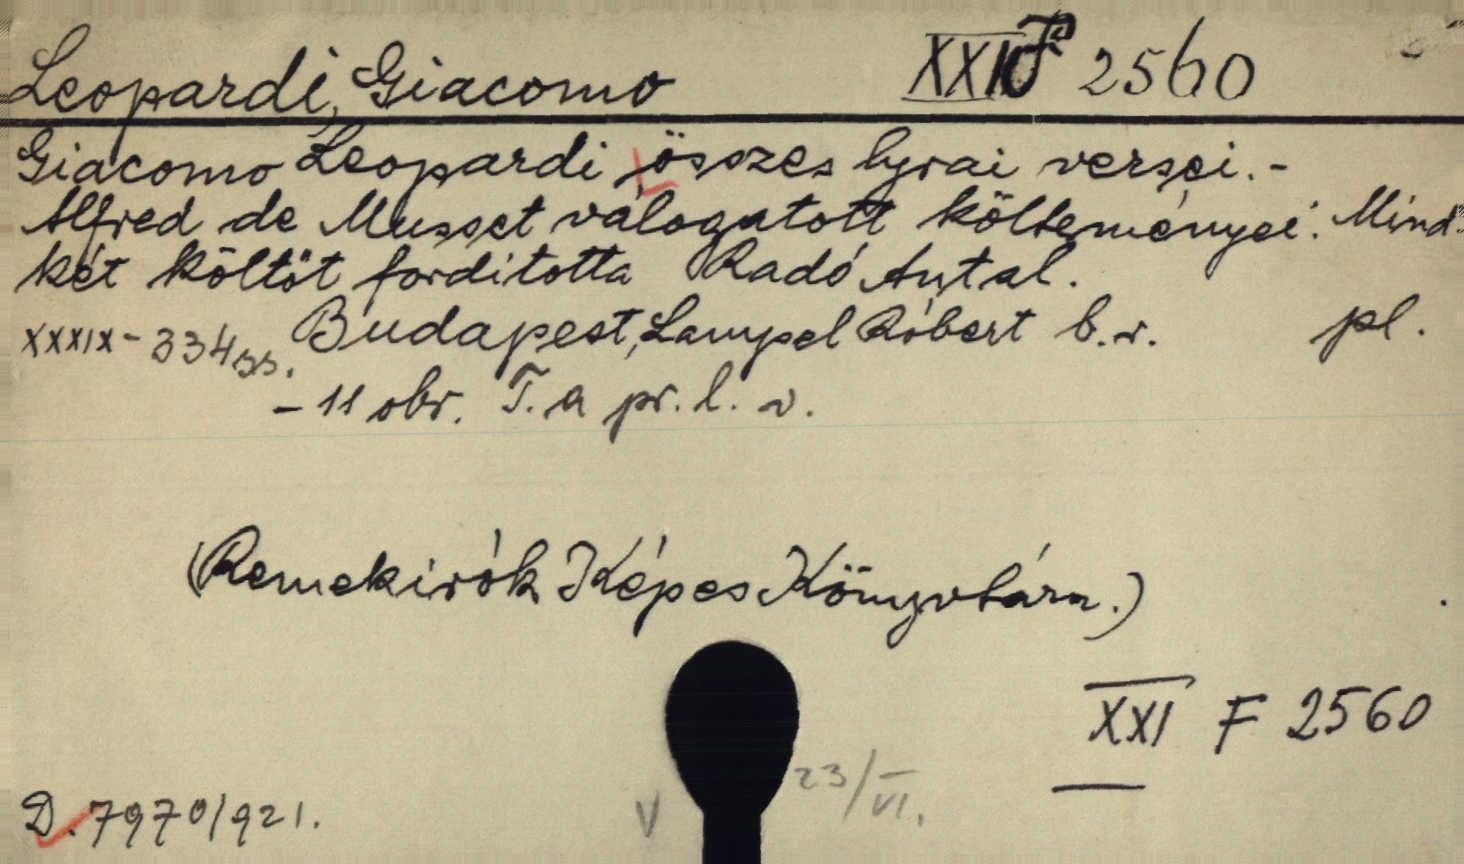 Leopardi, Giacomo XXI F 2560
Giacomo Leopardi összes lyrai versei. -
Alfred de Musset válogatott költeményei. Mind-
két költőt fordította Radó Antal.
XXXIX - 334 ss. Budapest, Lampel Róbert b. r. pl.
- 11 obr. T. a pr. l. v.
(Remekirók Képes Könyvtára.)
XXI F 2560
23/VI.
V
D. 7970/921.